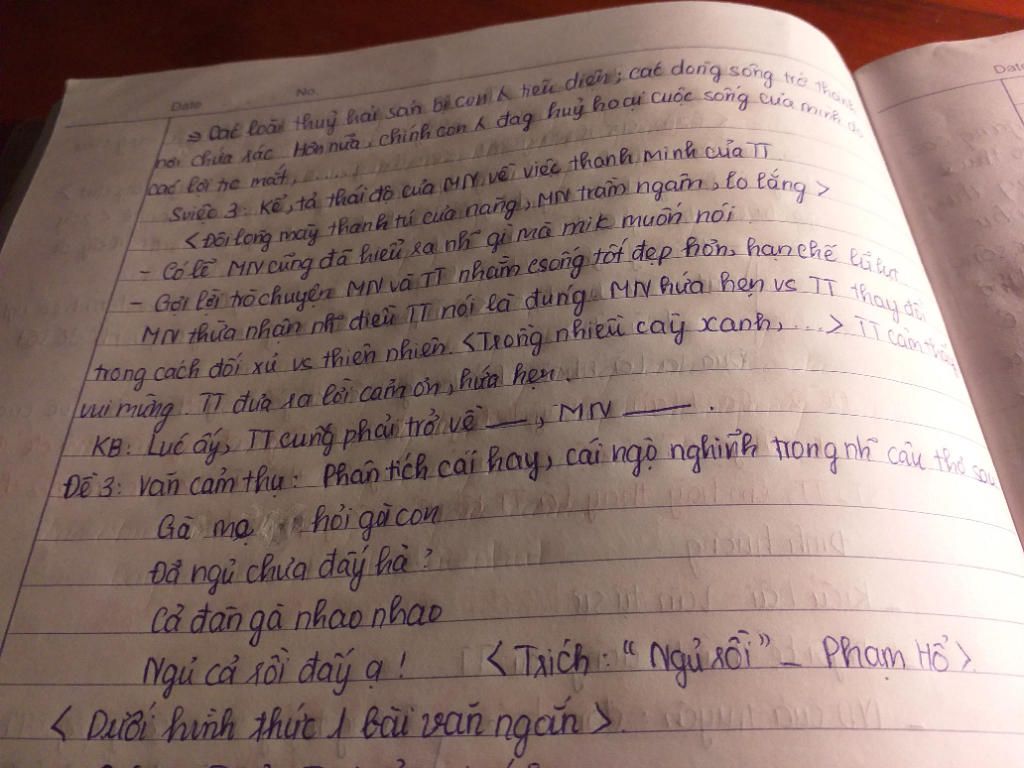 Date No. Date
⇒ Các loài thuỷ hải sản bị con ng tiêu diệt; các dòng sông trở thành
nơi chứa rác. Hơn nữa, chính con ng đag huỷ hoại cuộc sống của mình do
các lợi trc mắt, .......
Sviệc 3: Kể, tả thái độ của MN về việc thanh minh của TT
< Đôi lông mày thanh tú của nàng, MN trầm ngâm, lo lắng >
- Có lẽ MN cũng đã hiểu ra nh~ gì mà mik muốn nói
- Gợi lời trò chuyện MN và TT nhằm csống tốt đẹp hơn, hạn chế lũ lụt
MN thừa nhận nh~ điều TT nói là đúng. MN hứa hẹn vs TT thay đổi
trong cách đối xử vs thiên nhiên. <Trồng nhiều cây xanh, ...> TT cảm thấy
vui mừng. TT đưa ra lời cảm ơn, hứa hẹn.
KB: Lúc ấy, TT cũng phải trở về __, MN ___.
Đề 3: Văn cảm thụ: Phân tích cái hay, cái ngộ nghĩnh trong nh~ câu thơ sau
Gà mẹ hỏi gà con
Đã ngủ chưa đấy hả?
Cả đàn gà nhao nhao
Ngủ cả rồi đấy ạ! < Trích: "Ngủ rồi" - Phạm Hổ >
< Dưới hình thức 1 bài văn ngắn >.